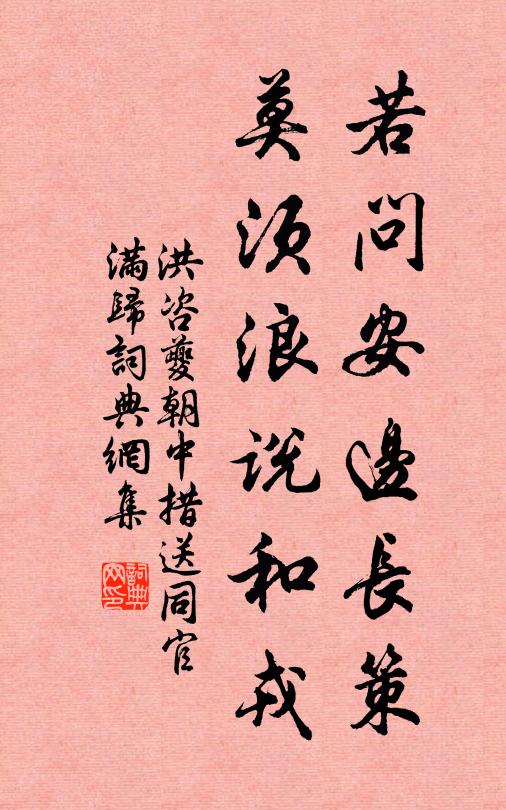 若问安邊長策
莫须浪说和戎
洪咨夔朝中措送同官
满歸詞典網集
詞典网印